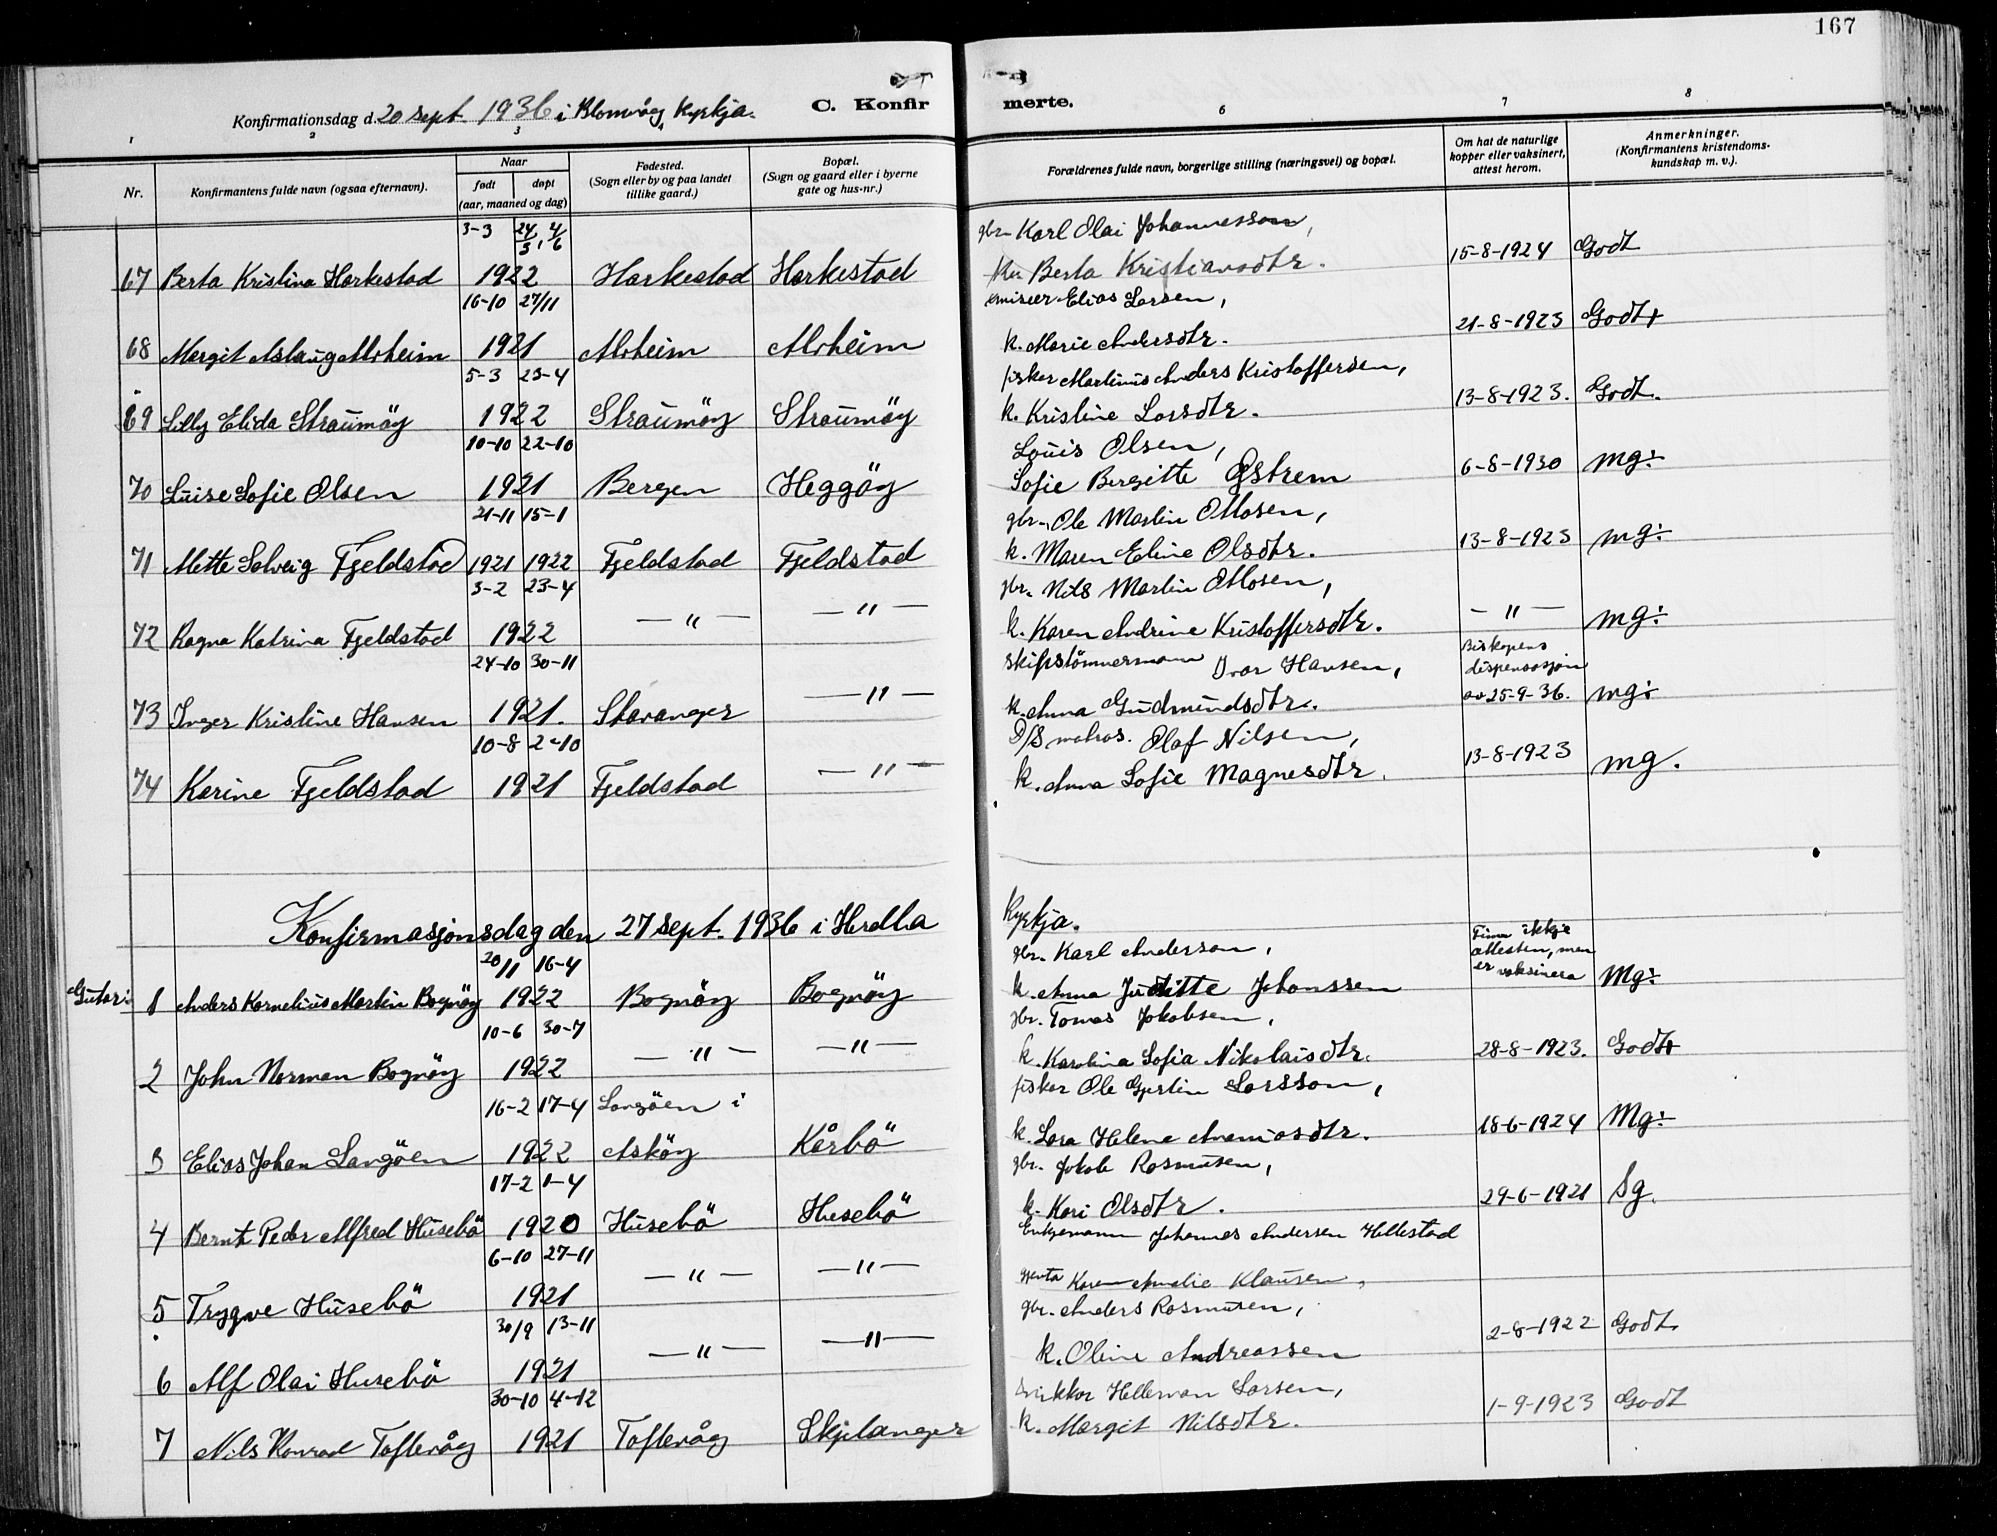 167
Konfirmationsdag d. 20 sept. 1936 i Blomvåg Kyrkja.
C. Konfirmerte.
1 2 3 4 6 7 8
Nr.
Konfirmantens fulde navn (ogsaa efternavn).
Naar
født døpt
(aar, maaned og dag)
Fødested.
(Sogn eller by og paa landet
tillike gaard.)
Bopæl.
(Sogn og gaard eller i byerne
gate og hus-nr.)
Forældrenes fulde navn, borgerlige stilling (næringsvei) og bopæl.
Om hat de naturlige
kopper eller vaksinert,
attest herom.
Anmerkninger.
(Konfirmantens kristendoms-
kundskap m. v.).
3-3 24/3, 4/6 gbr. Karl Olai Johannesson,
67 Berta Kristina Harkestad 1922 Harkestad Harkestad Berta Kristiansdtr. 15-8-1924 Godt
16-10 27/11 Elias Larsen,
68 Margit Aslaug Alvheim 1921 Alvheim Alvheim k. Marie Andersdtr. 21-8-1923 Godt+
5-3 23-4 fisker Martinus Anders Kristoffersen,
69 Lilly Elida Straumöy 1922 Straumöy Straumöy k. Kristine Larsdtr. 13-8-1923. Godt.
10-10 22-10 Louis Olsen,
70 Luise Sofie Olsen 1921 Bergen Heggöy Sofie Bergitte Østrem 6-8-1930 mg÷
21-11 15-1 gbr. Ole Martin Olsen,
71 Mette Solveig Fjeldstad 1921 1922 Fjeldstad Fjeldstad k. Maren Eline Olsdtr. 13-8-1923 mg÷
3-2 23-4 gbr. Nils Martin Olsen,
72 Ragna Katrina Fjeldstad 1922 — " — — " — k. Karen Andrine Kristoffersdtr. — " — mg÷
24-10 30-11 skipstömmermann Ivar Hansen, Biskopens
dispensasjon
73 Inger Kristine Hansen 1921. Stavanger — " — k. Anna Gudmundsdtr. av 25-9-36. mg÷
10-8 2-10 D/S matros. Olaf Nilsen,
74 Karine Fjeldstad 1921 Fjeldstad — " — k. Anna Sofie Magnesdtr. 13-8-1923 mg.
Konfirmasjonsdag den 27 sept. 1936 i Herdla Kyrkja.
20/11 16-4 gbr. Karl Anderson, ikkje
attesten, men
Gutar: 1 Anders Kornelius Martin Bognöy 1922 Bognöy Bognöy k. Anna Juditte Johanssen er vaksinera Mg÷
10-6 30-7 gbr. Tomas Jakobsen,
2 John Norman Bognöy 1922 — " — — " — k. Karolina Sofia Nikolaisdtr. 28-8-1923. Godt+
16-2 17-4 Langöen i fisker Ole Gjertin Larsson,
3 Elias Johan Langöen 1922 Asköy Kårbö k. Lara Helene Ananiasdtr. 18-6-1924 Mg÷
17-2 1-4 gbr. Jakob Rasmusen,
4 Bernt Peder Alfred Husebö 1920 Husebö Husebö k. Kari Olsdtr. 29-6-1921 Sg.
6-10 27-11 Enkjemann Johannes Andersen Hellestad
5 Trygve Husebö 1921 — " — — " — gjenta Karen Amalie Klausen,
30/9 13-11 gbr. Anders Rasmusen,
6 Alf Olai Husebö 1921 — " — — " — k. Oline Andreassen 2-8-1922 Godt.
30-10 4-12 Larsen,
7 Nils Konrad Toftevåg 1921 Toftevåg Skjelanger k. Margit Nilsdtr. 1-9-1923 Godt